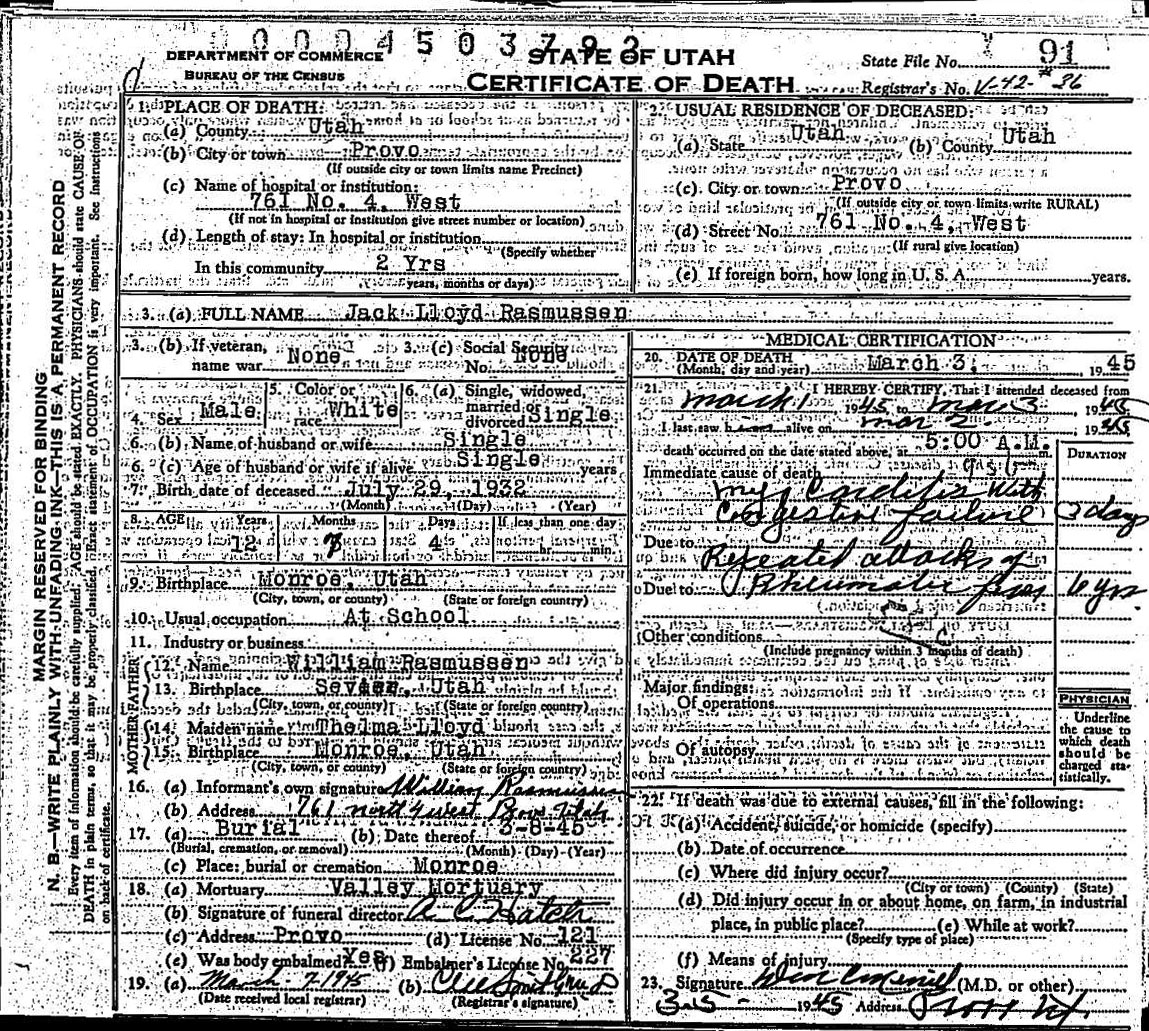 0 0 0 4 5 0 3 7 9 2
DEPARTMENT OF COMMERCE
BUREAU OF THE CENSUS
STATE OF UTAH
CERTIFICATE OF DEATH
State File No. 91
Registrar's No. V-42- 36
MARGIN RESERVED FOR BINDING
N. B.—WRITE PLAINLY WITH UNFADING INK—THIS IS A PERMANENT RECORD
Every item of information should be carefully supplied. AGE should be stated EXACTLY. PHYSICIANS should state CAUSE OF
DEATH in plain terms, so that it may be properly classified. Exact statement of OCCUPATION is very important. See instructions
on back of certificate.
1. PLACE OF DEATH:
(a) County Utah
(b) City or town Provo
(If outside city or town limits name Precinct)
(c) Name of hospital or institution:
761 No. 4, West
(If not in hospital or institution give street number or location)
(d) Length of stay: In hospital or institution
(Specify whether
In this community 2 Yrs
years, months or days)
2. USUAL RESIDENCE OF DECEASED:
(a) State Utah (b) County Utah
(c) City or town Provo
(If outside city or town limits write RURAL)
(d) Street No. 761 No. 4, West
(If rural give location)
(e) If foreign born, how long in U. S. A. years.
3. (a) FULL NAME Jack Lloyd Rasmussen
3. (b) If veteran, name war None
3. (c) Social Security No. None
4. Sex Male
5. Color or race White
6. (a) Single, widowed, married or divorced Single
6. (b) Name of husband or wife Single
6. (c) Age of husband or wife if alive Single years
7. Birth date of deceased July 29, 1932
(Month) (Day) (Year)
8. AGE Years Months Days If less than one day
12 7 4 hr. min.
9. Birthplace Monroe, Utah
(City, town, or county) (State or foreign country)
10. Usual occupation At School
11. Industry or business
FATHER
12. Name William Rasmussen
13. Birthplace Sevier, Utah
(City, town, or county) (State or foreign country)
MOTHER
14. Maiden name Thelma Lloyd
15. Birthplace Monroe, Utah
(City, town, or county) (State or foreign country)
16. (a) Informant's own signature William Rasmussen
(b) Address 761 north 4 west Provo Utah
17. (a) Burial (b) Date thereof 3-8-45
(Burial, cremation, or removal) (Month) (Day) (Year)
(c) Place: burial or cremation Monroe
18. (a) Mortuary Valley Mortuary
(b) Signature of funeral director A. C. Hatch
(c) Address Provo (d) License No. 121
(e) Was body embalmed Yes (f) Embalmer's License No. 227
19. (a) March 7-1945 (b)
(Date received local registrar) (Registrar's signature)
MEDICAL CERTIFICATION
20. DATE OF DEATH March 3, 1945
(Month, day and year)
21. I HEREBY CERTIFY, That I attended deceased from
March 1 1945 to Mar 3, 1945
I last saw h alive on Mar 2 1945
death occurred on the date stated above, at 5:00 A.M. m.
DURATION
Immediate cause of death
Carditis with
Congestive failure 3 days
Due to Repeated attacks of
Due to Rheumatic fever 6 yrs
Other conditions
(Include pregnancy within 3 months of death)
Major findings:
Of operations
Of autopsy
PHYSICIAN
Underline
the cause to
which death
should be
charged sta-
tistically.
22. If death was due to external causes, fill in the following:
(a) Accident, suicide, or homicide (specify)
(b) Date of occurrence
(c) Where did injury occur?
(City or town) (County) (State)
(d) Did injury occur in or about home, on farm, in industrial
place, in public place? (e) While at work?
(Specify type of place)
(f) Means of injury
23. Signature (M.D. or other)
3-5- 1945 Address Provo Ut.